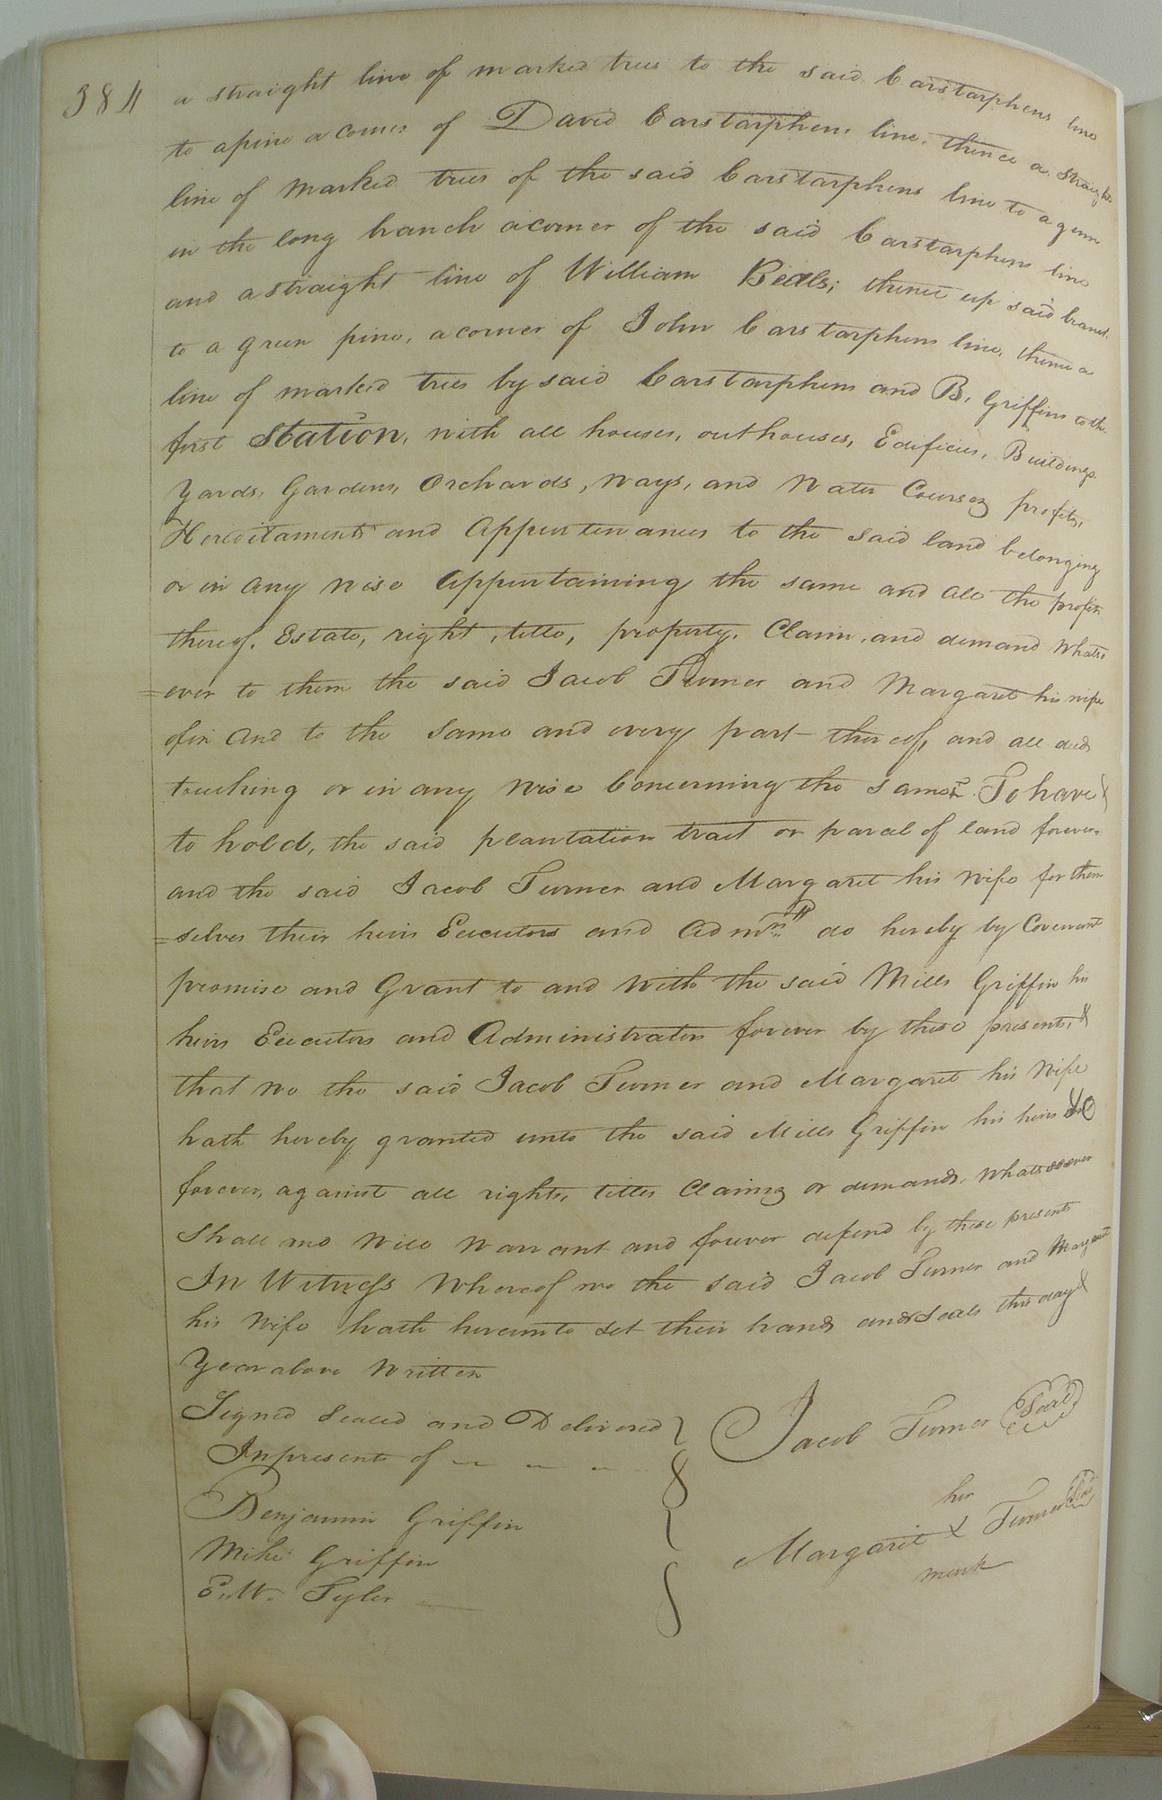 384
a straight line of marked trees to the said Carstarphens line
to a pine a corner of David Carstarphens line, thence a straight
line of marked trees of the said Carstarphens line to a gum
in the long branch a corner of the said Carstarphens line
and a straight line of William Beals; thence up said branch
to a green pine, a corner of John Carstarphens line, thence a
line of marked trees by said Carstarphens and B. Griffins to the
first Station, with all houses, outhouses, Edificies, Buildings
Yards, Gardens, Orchards, Ways, and Water Courses profits,
Hereditaments and Appurtenances to the said land belonging
or in any wise Appurtaining the same and all the profits
thereof. Estate, right, title, property. Claim, and demand whats
=ever to them the said Jacob Turner and Margaret his wife
of in and to the same and every part thereof, and all deeds
touching or in any wise Concerning the same. To have &
to hold, the said plantation tract or parcel of land forever
and the said Jacob Turner and Margaret his wife for them
=selves their heirs Executors and Admrs do hereby by Covenant
promise and Grant to and with the said Mills Griffin his
heirs Executors and Administrators forever by these presents, &
that we the said Jacob Turner and Margaret his wife
hath hereby granted unto the said Mills Griffin his heirs &c
forever, against all rights, titles Claims or demands, whatsoever
Shall and will warrant and forever defend by these presents
In Witness Whereof we the said Jacob Turner and Margaret
his wife hath hereunto set their hands and seals this day &
Year above written
Signed Sealed and Delivered
In presents of
Jacob Turner Seal
Benjamin Griffin
her
Margaret X Turner Seal
mark
Mike Griffin
P. W. Tyler